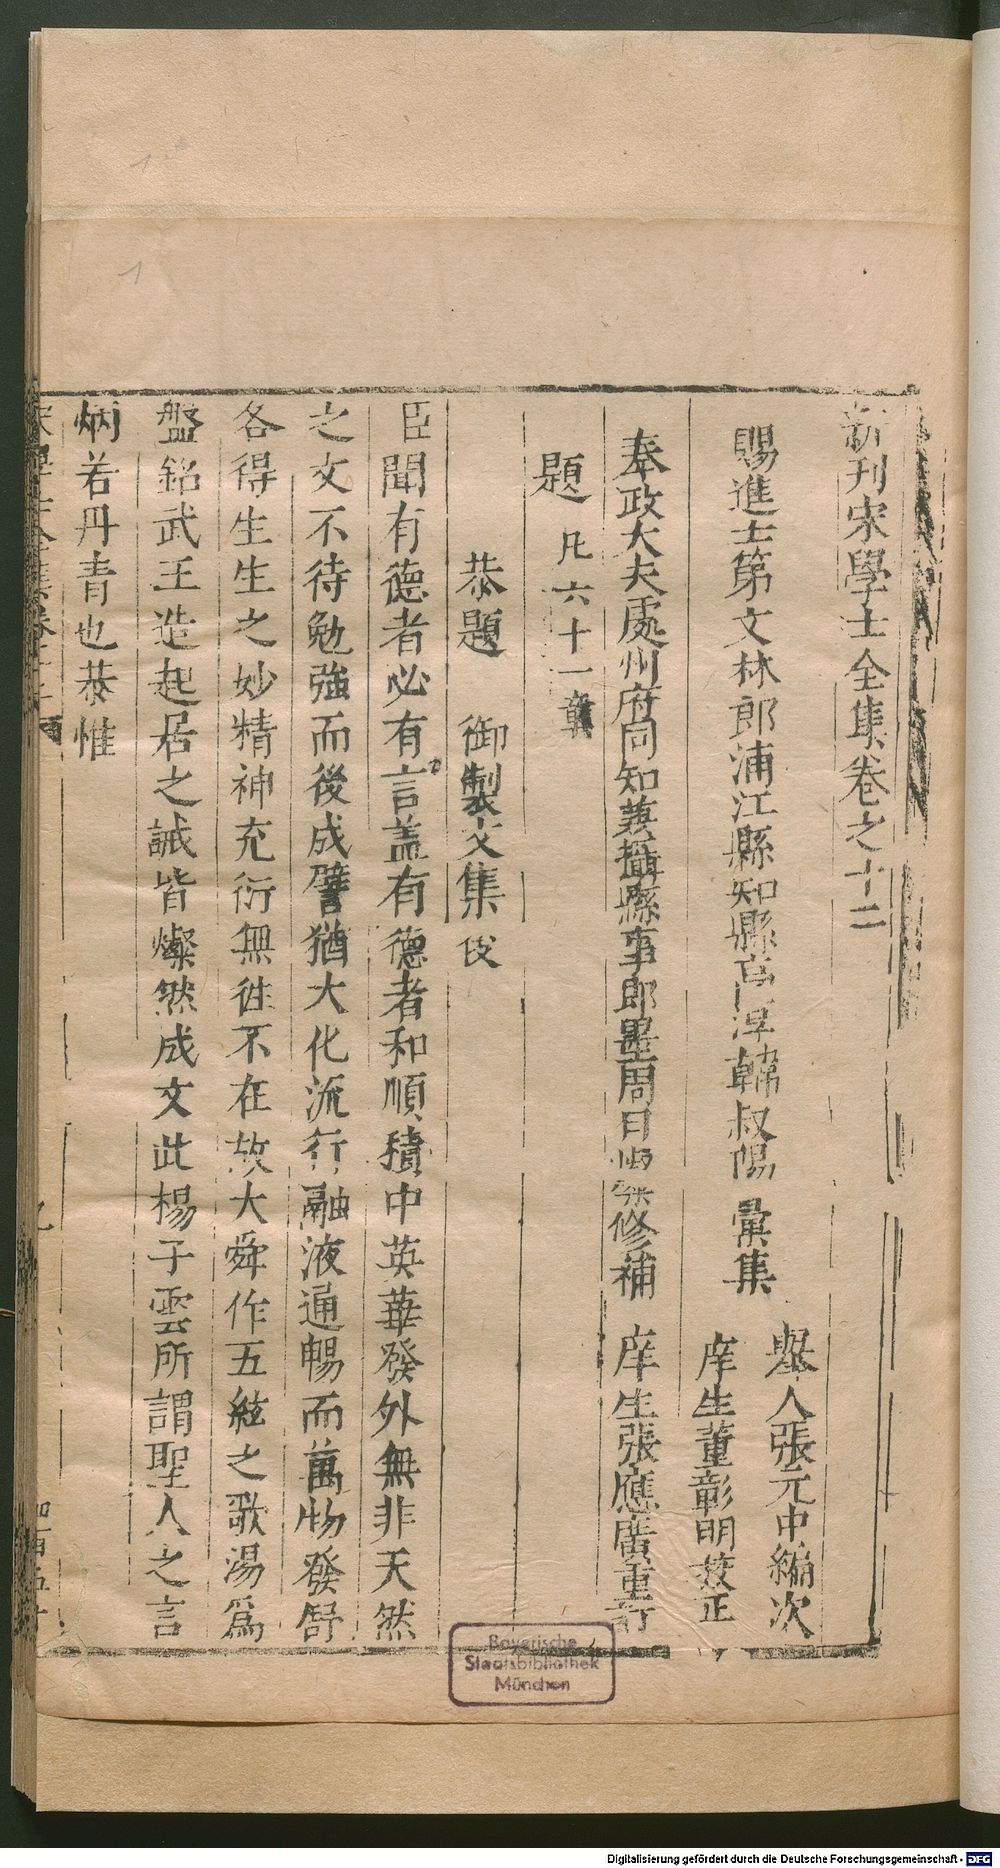 新刊宋學士全集卷之十二
賜進士第文林郎浦江縣知縣高淳韓叔陽 彙集
舉人張元中編次
庠生董彰明校正
奉政大夫處州府同知兼攝縣事郎墨周日燦修補 庠生張應廣重訂
題 凡六十一章
恭題 御製文集後
臣聞有德者必有言盖有德者和順積中英華發外無非天然
之文不待勉強而後成譬猶大化流行融液通暢而萬物發舒
各得生生之妙精神充衍無徃不在故大舜作五絃之歌湯爲
盤銘武王造起居之誡皆燦然成文此楊子雲所謂聖人之言
炳若丹青也恭惟
宋學士全集卷十二
Bayerische
Staatsbibliothek
München
Digitalisierung gefördert durch die Deutsche Forschungsgemeinschaft - DFG